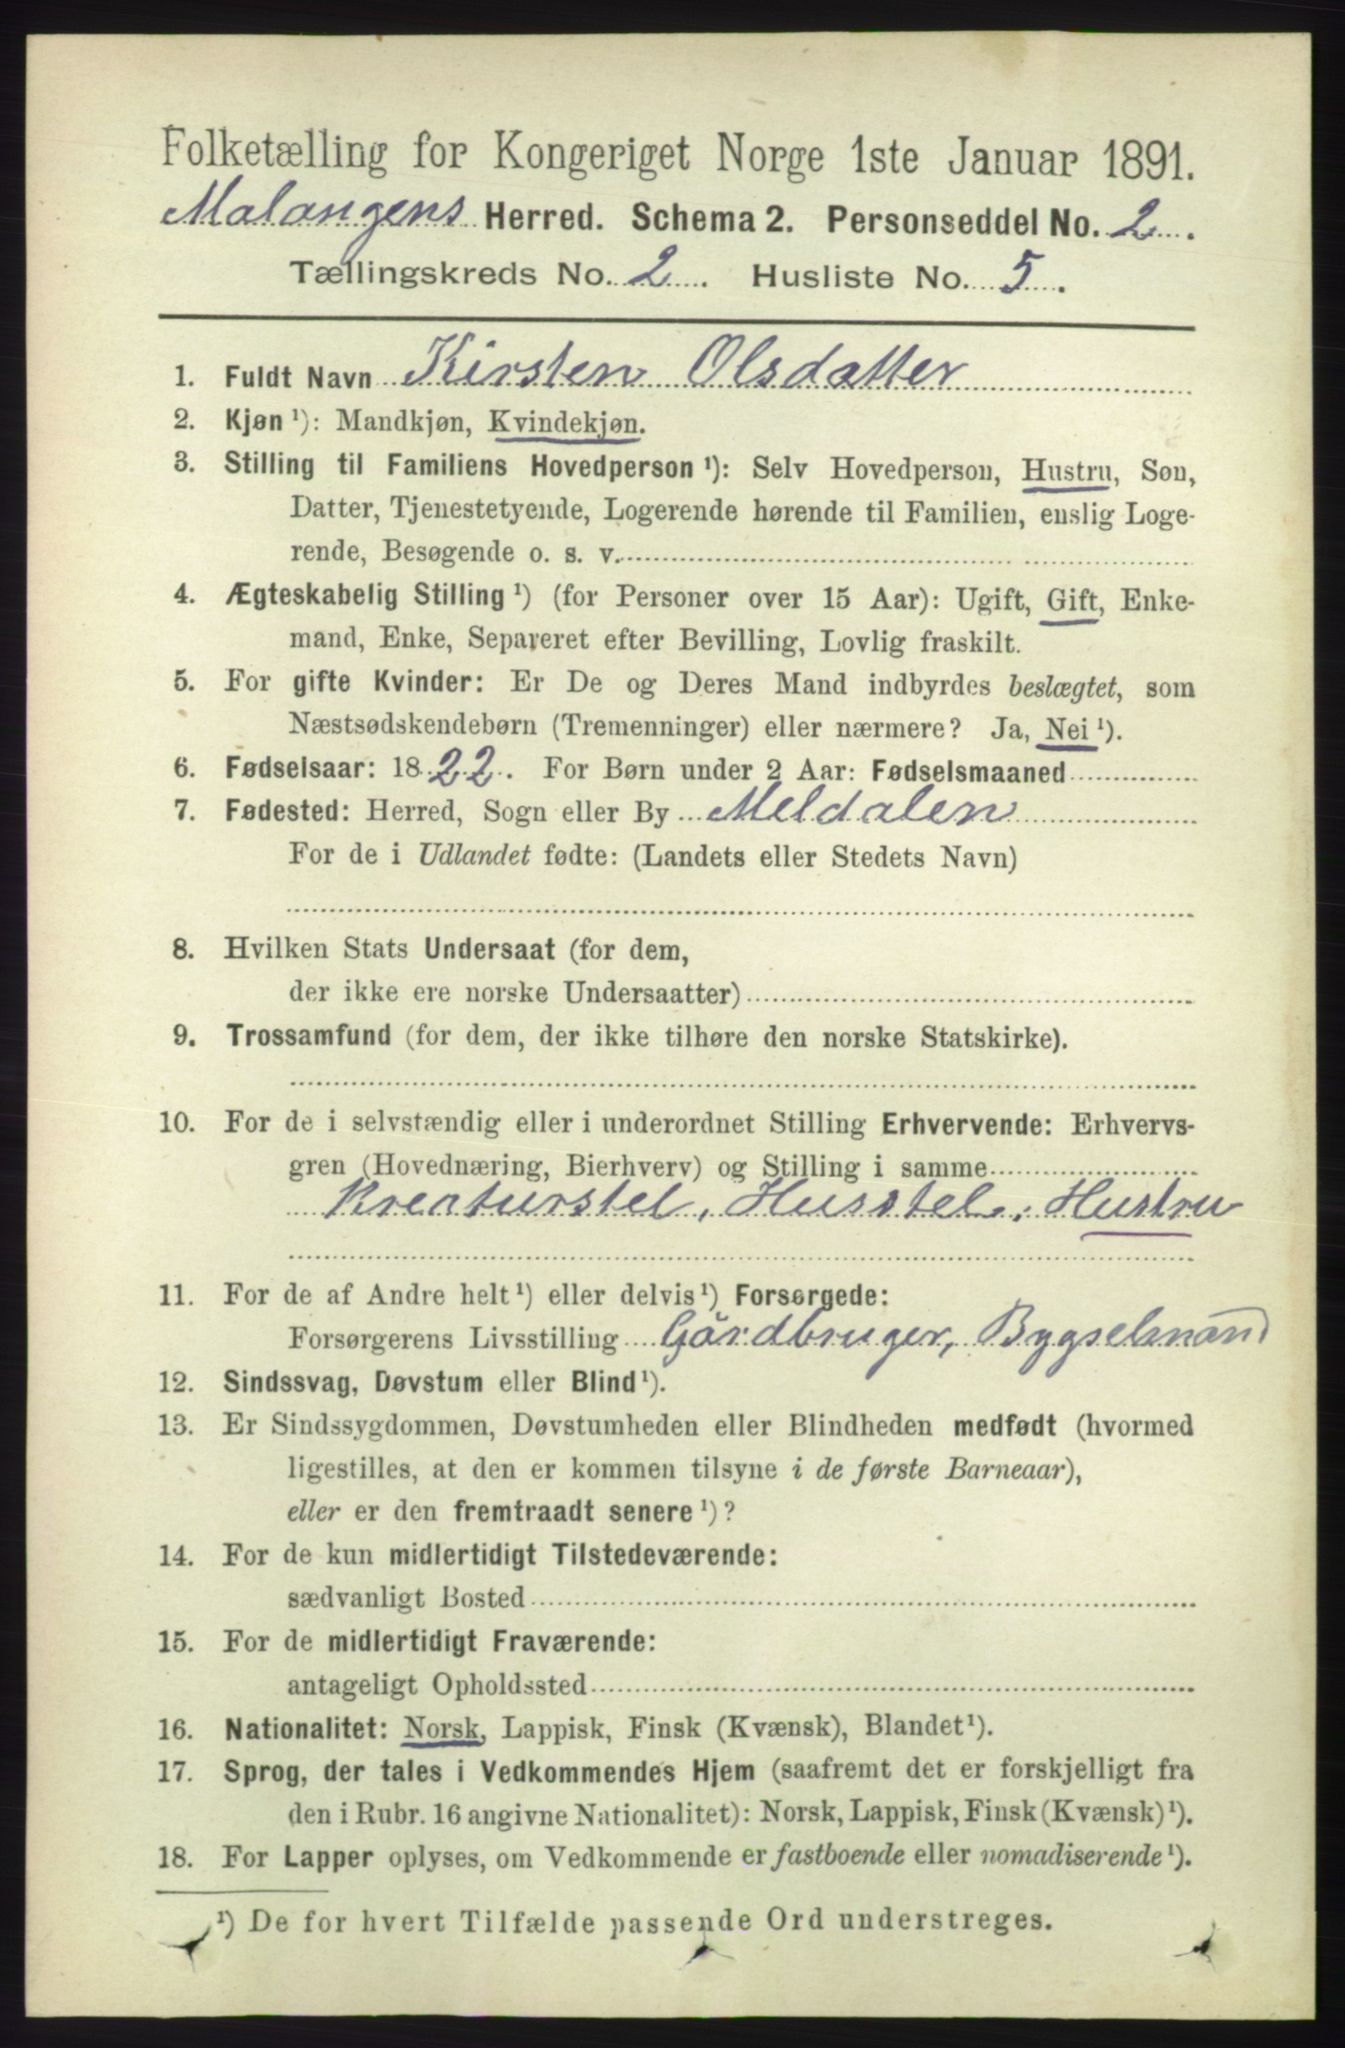 Folketælling for Kongeriget Norge 1ste Januar 1891.
Malangens Herred. Schema 2. Personseddel No. 2.
Tællingskreds No. 2. Husliste No. 5.
1. Fuldt Navn Kirsten Olsdatter
2. Kjøn ¹): Mandkjøn, Kvindekjøn.
3. Stilling til Familiens Hovedperson ¹): Selv Hovedperson, Hustru, Søn,
Datter, Tjenestetyende, Logerende hørende til Familien, enslig Loge-
rende, Besøgende o. s. v.
4. Ægteskabelig Stilling ¹) (for Personer over 15 Aar): Ugift, Gift, Enke-
mand, Enke, Separeret efter Bevilling, Lovlig fraskilt.
5. For gifte Kvinder: Er De og Deres Mand indbyrdes beslægtet, som
Næstsødskendebørn (Tremenninger) eller nærmere? Ja, Nei ¹).
6. Fødselsaar: 1822. For Børn under 2 Aar: Fødselsmaaned
7. Fødested: Herred, Sogn eller By Meldalen
For de i Udlandet fødte: (Landets eller Stedets Navn)
8. Hvilken Stats Undersaat (for dem,
der ikke ere norske Undersaatter)
9. Trossamfund (for dem, der ikke tilhøre den norske Statskirke).
10. For de i selvstændig eller i underordnet Stilling Erhvervende: Erhvervs-
gren (Hovednæring, Bierhverv) og Stilling i samme
Kreaturstel, Husstel, Hustru
11. For de af Andre helt ¹) eller delvis ¹) Forsørgede:
Forsørgerens Livsstilling Gårdbruger, Bygselmand
12. Sindssvag, Døvstum eller Blind ¹).
13. Er Sindssygdommen, Døvstumheden eller Blindheden medfødt (hvormed
ligestilles, at den er kommen tilsyne i de første Barneaar),
eller er den fremtraadt senere ¹)?
14. For de kun midlertidigt Tilstedeværende:
sædvanligt Bosted
15. For de midlertidigt Fraværende:
antageligt Opholdssted
16. Nationalitet: Norsk, Lappisk, Finsk (Kvænsk), Blandet ¹).
17. Sprog, der tales i Vedkommendes Hjem (saafremt det er forskjelligt fra
den i Rubr. 16 angivne Nationalitet): Norsk, Lappisk, Finsk (Kvænsk) ¹).
18. For Lapper oplyses, om Vedkommende er fastboende eller nomadiserende ¹).
¹) De for hvert Tilfælde passende Ord understreges.